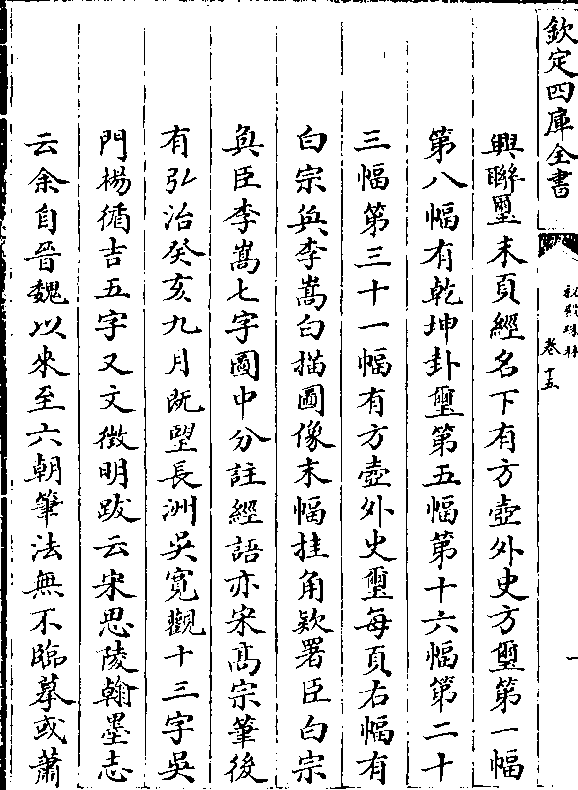 欽定四庫全書
秘殿珠林
卷十五
興聯璽末頁經名下有方壺外史方璽第一幅
第八幅有乾坤卦璽第五幅第十六幅第二十
三幅第三十一幅有方壺外史璽每頁右幅有
白宗兵李嵩白描圖像末幅挂角欵署臣白宗
兵臣李嵩七字圖中分註經語亦宋髙宗筆後
有弘治癸亥九月既朢長洲吳寛觀十三字吳
門楊循吉五字又文徵明跋云宋思陵翰墨志
云余自晉魏以來至六朝筆法無不臨摹或蕭